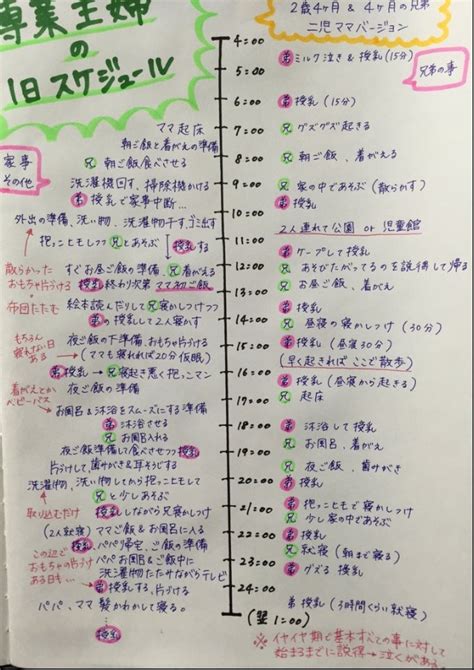 専業主婦
の
1日スケジュール
2歳4ヶ月 & 4ヶ月の兄弟
二児ママバージョン
兄弟の事
家事
その他
4:00
弟ミルク泣き & 授乳(15分)
5:00
6:00
弟授乳(15分)
ママ起床
7:00
兄グズグズ起きる
朝ご飯と着がえの準備
兄朝ご飯食べさせる
8:00
兄朝ご飯、着がえる
洗濯機回す、掃除機かける
9:00
兄家の中であそぶ(散らかす)
弟授乳で家事中断…
弟授乳
外出の準備、洗い物、洗濯物干す、ゴミ出す
10:00
2人連れて公園 or 児童館
抱っこともしつつ兄とあそぶ 授乳する
11:00
弟ケープして授乳
散らかった
おもちゃ片づける
すぐお昼ご飯の準備、兄着がえる
12:00
兄あそびたがってるのを説得して帰る
授乳終わり次第ママ初ご飯
兄お昼ご飯、着がえ
布団たたむ
絵本読んだりして兄寝かしつけつつ
13:00
弟授乳
弟の授乳して2人寝かす
14:00
兄昼寝の寝かしつけ(30分)
もちろん
寝れない日
ある
夜ご飯の下準備、おもちゃ片づける
(ママも寝れれば20分仮眠)
15:00
弟授乳(30分)
(早く起きればここで散歩)
弟授乳→兄寝起き悪く抱っこマン
16:00
弟授乳(昼寝から起きる)
着がえとか
ベビーバス
夜ご飯の準備
17:00
兄起床
お風呂&沐浴をスムーズにする準備
弟沐浴させる
18:00
弟沐浴して授乳
兄お風呂入れる
兄お風呂、着がえ
夜ご飯準備して食べさせつつ授乳
19:00
兄夜ご飯、歯みがき
片づけして、歯みがき&耳そうじする
洗濯物、洗い物してから抱っこともして
20:00
弟授乳
兄と少しあそぶ
弟抱っこともで寝かしつけ
取り込むだけ
授乳しながら兄寝かしつけ
21:00
兄少し家の中であそぶ
(2人就寝)ママご飯&お風呂に入る
22:00
弟授乳
この辺で
おもちゃの片づけ
ある日も…
授乳、パパ帰宅、ご飯の準備
兄就寝(朝まで寝る)
パパお風呂&ご飯中に
23:00
弟グズる 授乳
洗濯物たたみながらテレビ
弟授乳する、片づける
24:00
パパ、ママ髪かわかして寝る。
弟授乳(3時間くらい就寝)
(翌1:00)
授乳
※イヤイヤ期で基本すべての事に対して
始まるまでに説得→泣くがある。